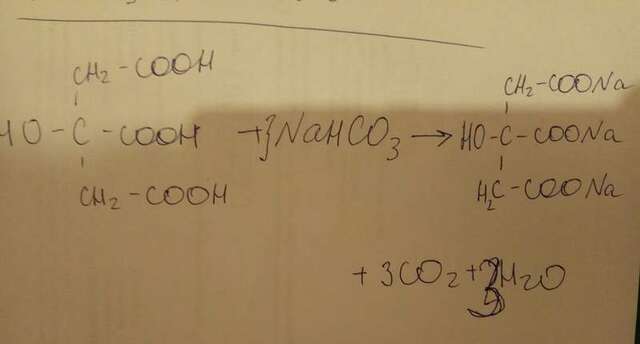 CH2-COOH
HO-C-COOH +3NaHCO3→
CH2-COOH
CH2-COONa
HO-C-COONa
H2C-COONa
+3CO2+3H2O